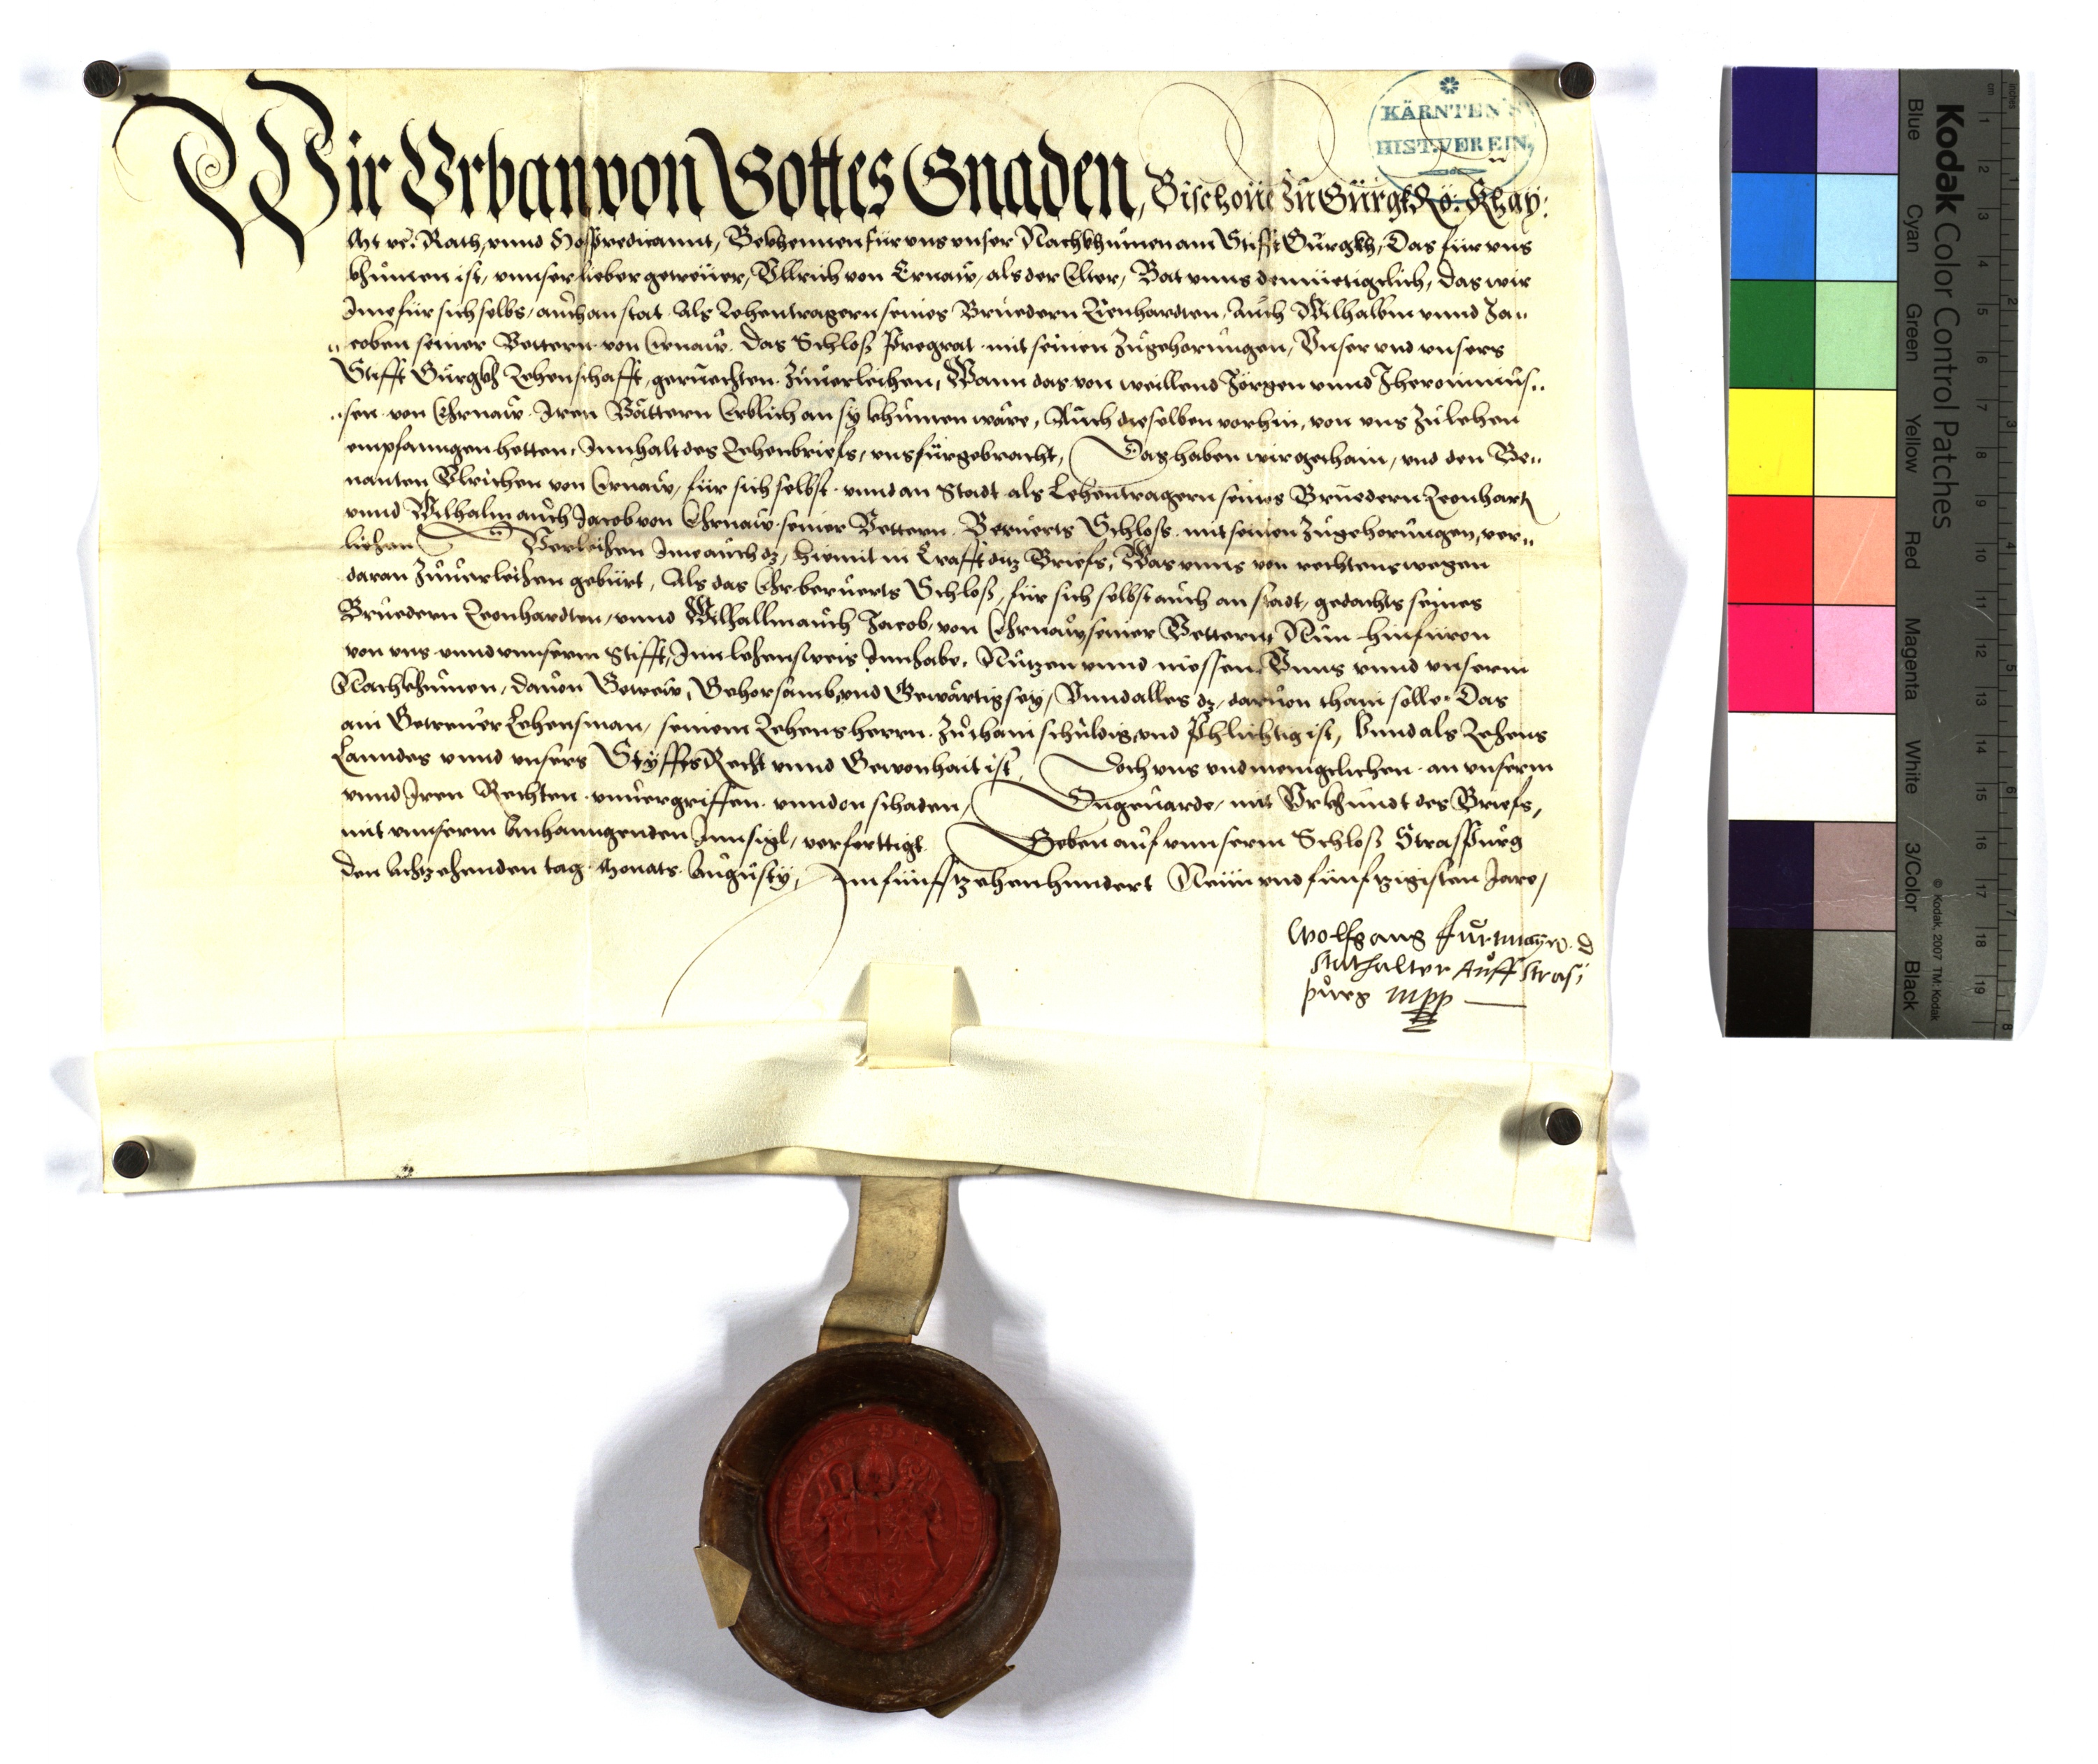 Wir Vrban von Gottes Gnaden, Bischoue zu Gürgk Rö: Khay:
KÄRNTEN'S
HIST.VEREIN,
Mt rc: Rath, vnnd Hofpredicannt, Bekhennen für vns vnser Nachkhumen am Stifft Gurgkh, Das für vns
khumen ist, vnnser lieber getreuer, Vllrich von Ernaw, als der Elter, Bat vnns demüetigclich, das wir
Ime für sich selbs, auch an stat Als Lehentragern seines Bruedern Lienhardten, Auch Wilhalbm vnnd Ja„
„coben seiner Vettern von Ernaw. Das Schloß Pregrat mit seinen Zugehorungen, Vnser vnd vnsers
Stifft Gurgkh Lehenschafft, geruechten Zuuerleihen, Wann das von weillend Jörgen vnnd Jheronimus„
„sen von Ehrnaw Iren Vättern Erblich an sy khumen wäre, Auch dieselben vorhin, von vns zu lehen
empfanngen hetten, Innhalt des Lehenbriefs, vns fürgebracht, Das haben wir gethain, vnd den Be„
nanten Vlrichen von Ernaw, für sich selbst vnnd an Stadt als Lehentragern seines Bruedern Leonhart
vnnd Wilhalm auch Jacob von Ehrnaw seiner Vettern Beruerts Schloss mit seinen Zugehorungen, ver„
lihen Verleihen Ime auch dz, hiemit in Crafft ditz Briefs, Was vnns von rechtens wegen
daran Zuuerleihen gebürt, Als das Ehr beruerts Schloß, für sich selbst auch an stadt, gedachts seines
Bruedern Leonhardten, vnnd Wilhallm auch Jacob, von Ehrnaw seiner Vettern, Nun hinfüron
von vns vnnd vnnserm Stifft, Inn lehensweis Innhabe, Nutzen vnnd niessen Vnns vnnd vnserm
Nachkhumen, dauon Getrew, Gehorsamb, vnd Gewärtig sey, Vnnd alles dz, daruon thain solle. Das
ain Getreuer Lehensman, seinem Lehensherrn Zu thain schuldig vnd Phlichtig ist, Vnnd als Lehens
Lanndes vnnd vnsers Styffts Recht vnnd Gewonhait ist, Doch vns vnd menigclichen an vnserm
vnnd Iren Rechten vnuergriffen vnnd on schaden, Ongeuarde, mit Vrkhundt des Briefs,
mit vnnserm Anhanngenden Innsigl, verferttigt Geben auf vnnserm Schloß Straspurg
den Achtzehenden tag Monats Augusty, Im fünfftzehenhundert Neün vnd fünftzigisten Jare,
Wolfgang Furtmayr. D
Stathalter Auff Stras;
purg mpp
Kodak Color Control Patches
Blue Cyan Green Yellow Red Magenta White 3/Color Black
© Kodak, 2007 TM: Kodak
cm 1 2 3 4 5 6 7 8 9 10 11 12 13 14 15 16 17 18 19
inches 1 2 3 4 5 6 7 8